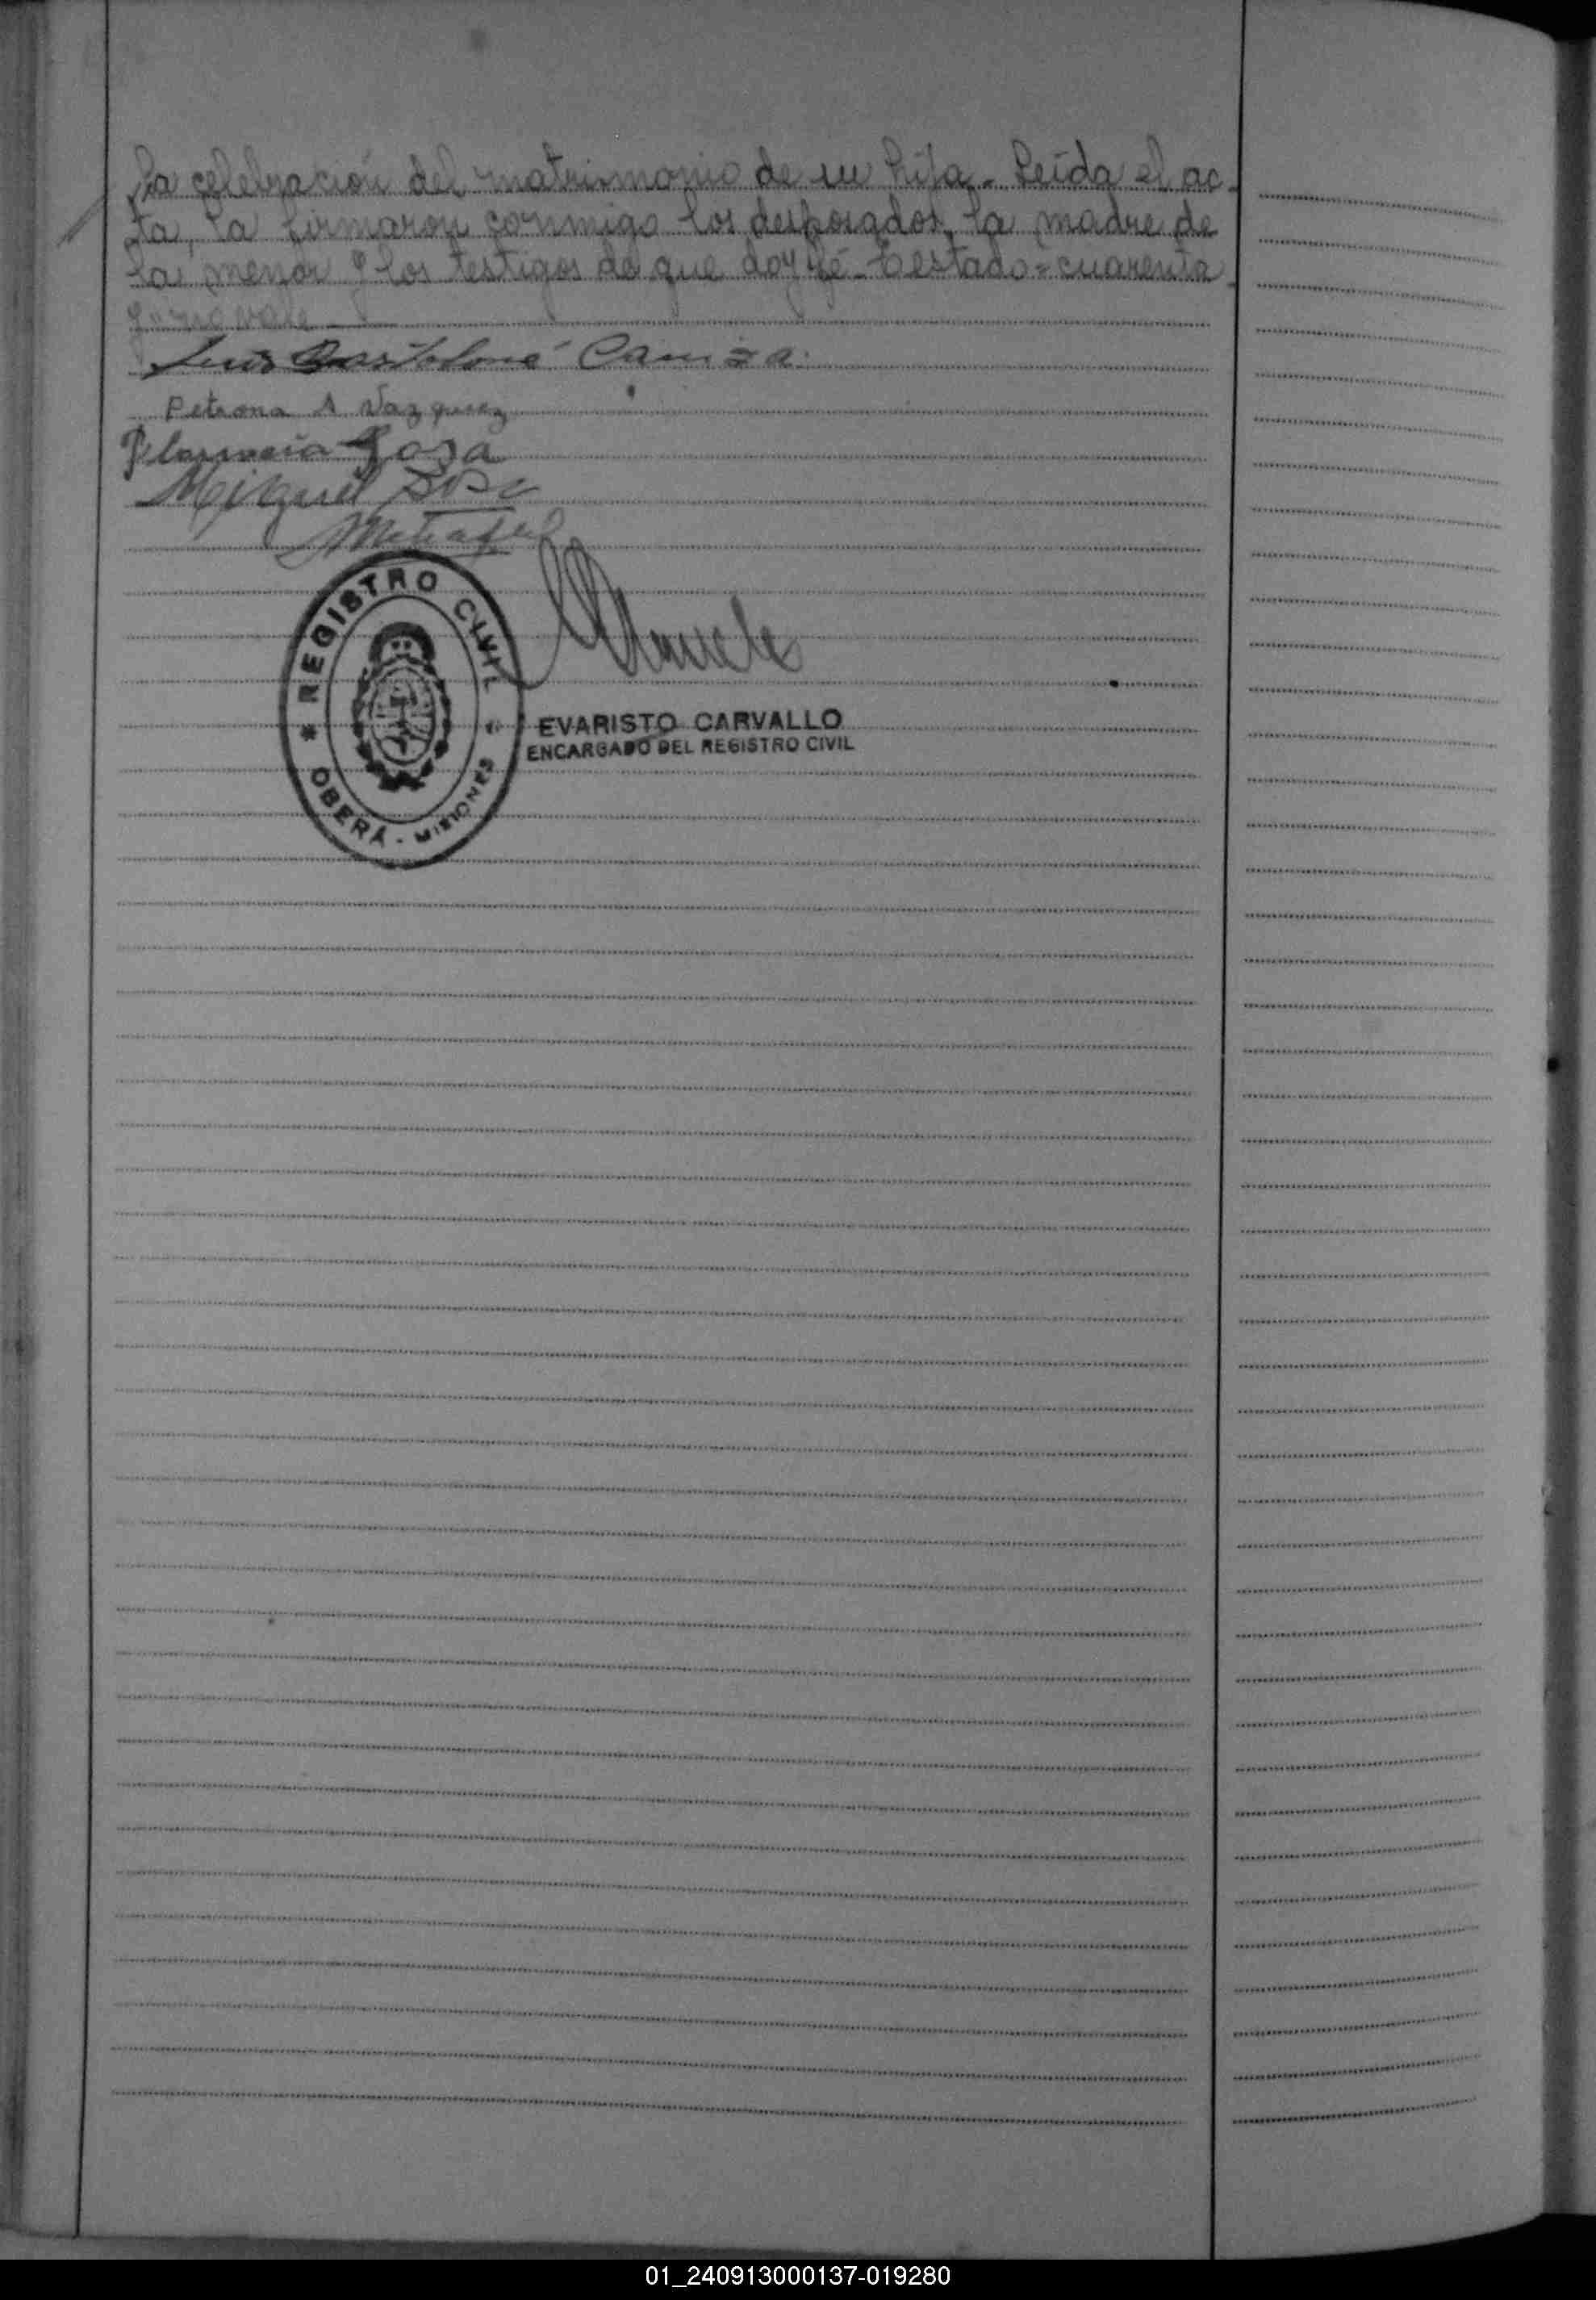 la celebración del matrimonio de su hija.- Leída el ac-
ta, la firmaron conmigo los desposados, la madre de
la menor y los testigos de que doy fé.- Testado=cuarenta
y=no vale
Luis Bartolomé Caniza.
Petrona A Vazquez
Sosa
Miguel
REGISTRO CIVIL
OBERÁ - MISIONES
EVARISTO CARVALLO
ENCARGADO DEL REGISTRO CIVIL
01_240913000137-019280